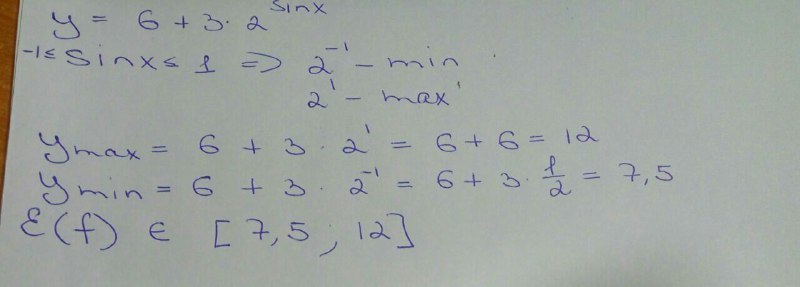 y = 6 + 3 · 2^sinx
-1 ≤ sinx ≤ 1 => 2^-1 - min
2^1 - max
y max = 6 + 3 · 2^1 = 6 + 6 = 12
y min = 6 + 3 · 2^-1 = 6 + 3 · 1/2 = 7,5
E(f) ∈ [7,5 ; 12]